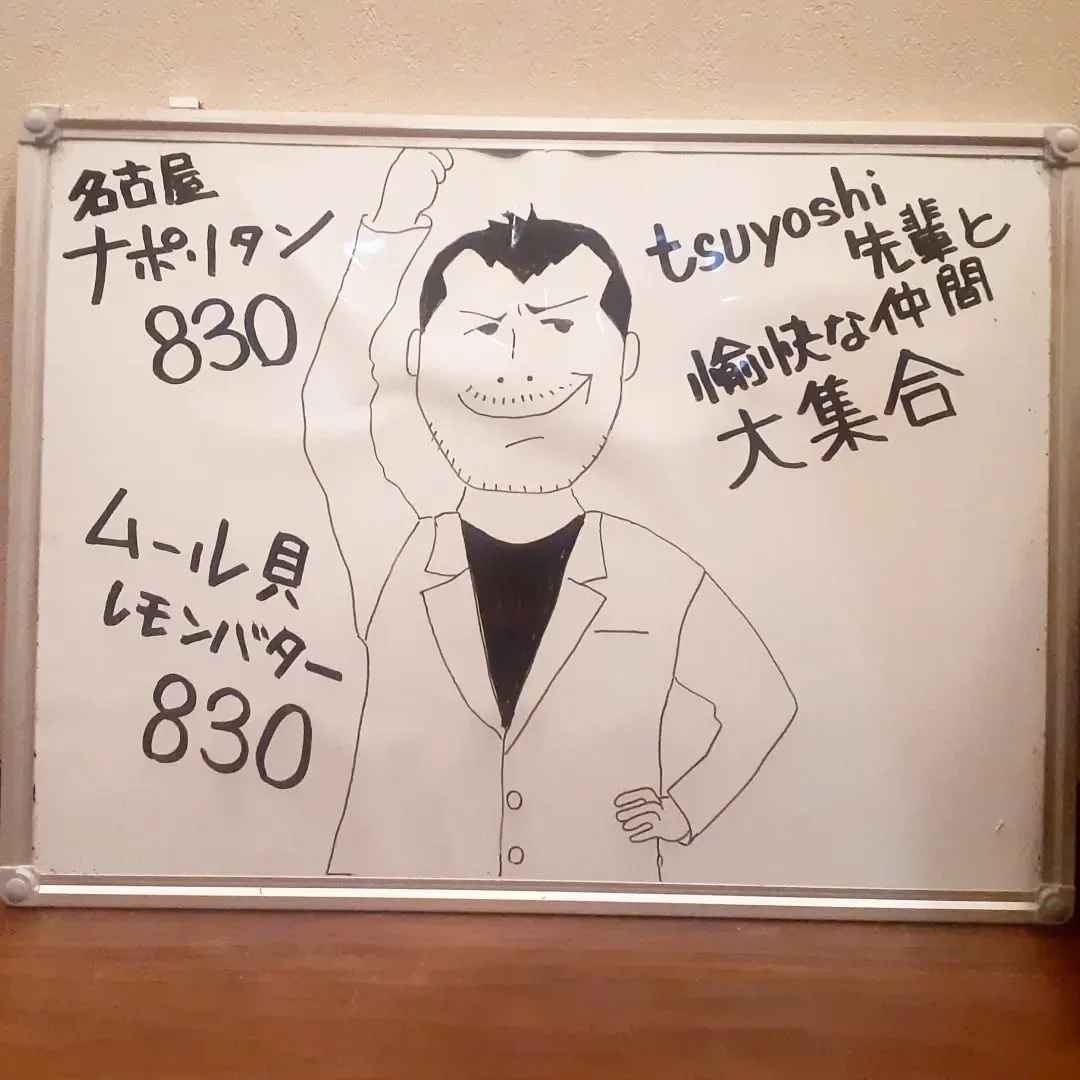 名古屋
ナポリタン
830
ムール貝
レモンバター
830
tsuyoshi
先輩と
愉快な仲間
大集合